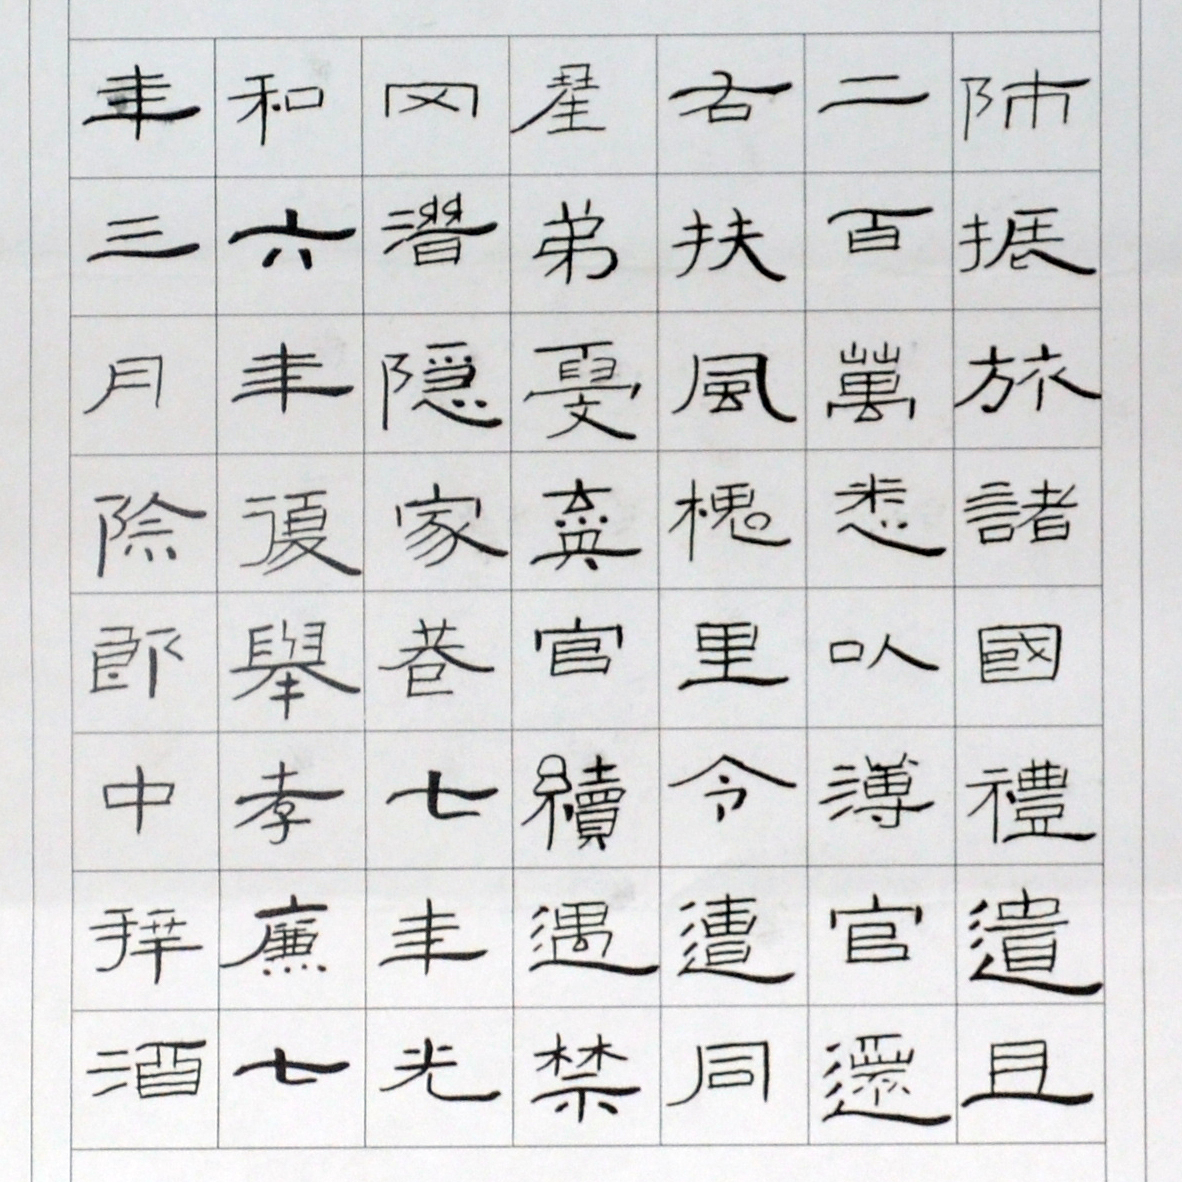 師振旅諸國禮遺且
二百萬悉以薄官遷
右扶風槐里令遭同
產弟憂棄官續遇禁
冈潛隱家巷七年光
和六年復舉孝廉七
年三月除郎中拜酒